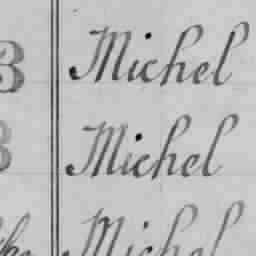 3 Michel
3 Michel
Michel